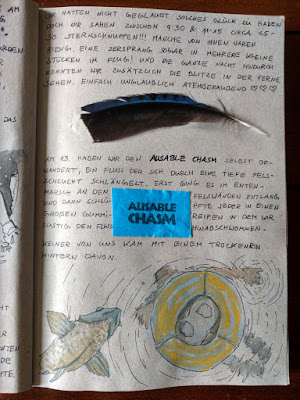 WIR HATTEN NICHT GEGLAUBT SOLCHES GLÜCK ZU HABEN
DOCH WIR SAHEN ZWISCHEN 9:30 & 11:15 CIRCA 45-
50 STERNSCHNUPPEN!!! MANCHE VON IHNEN WAREN
RIESIG. EINE ZERSPRANG SOGAR IN MEHRERE KLEINE
STÜCKEN IM FLUG! UND DIE GANZE NACHT HINDURCH
KONNTEN WIR ZUSÄTZLICH DIE BLITZE IN DER FERNE
SEHEN. EINFACH UNGLAUBLICH ATEMBERAUBEND
AM 13. HABEN WIR DEN AUSABLE CHASM SELBST BE-
WANDERT, EIN FLUSS DER SICH DURCH EINE TIEFE FELS-
SCHLUCHT SCHLÄNGELT. ERST GING ES IM ENTEN-
MARSCH AN DEN FELSWÄNDEN ENTLANG
UND DANN SCHLÜ PFTE JEDER IN EINEN
GROßEN GUMMI- REIFEN IN DEM WIR
LUSTIG DEN FLUSS HINABSCHWOMMEN.
AUSABLE
CHASM
KEINER VON UNS KAM MIT EINEM TROCKENEN
HINTERN DAVON.